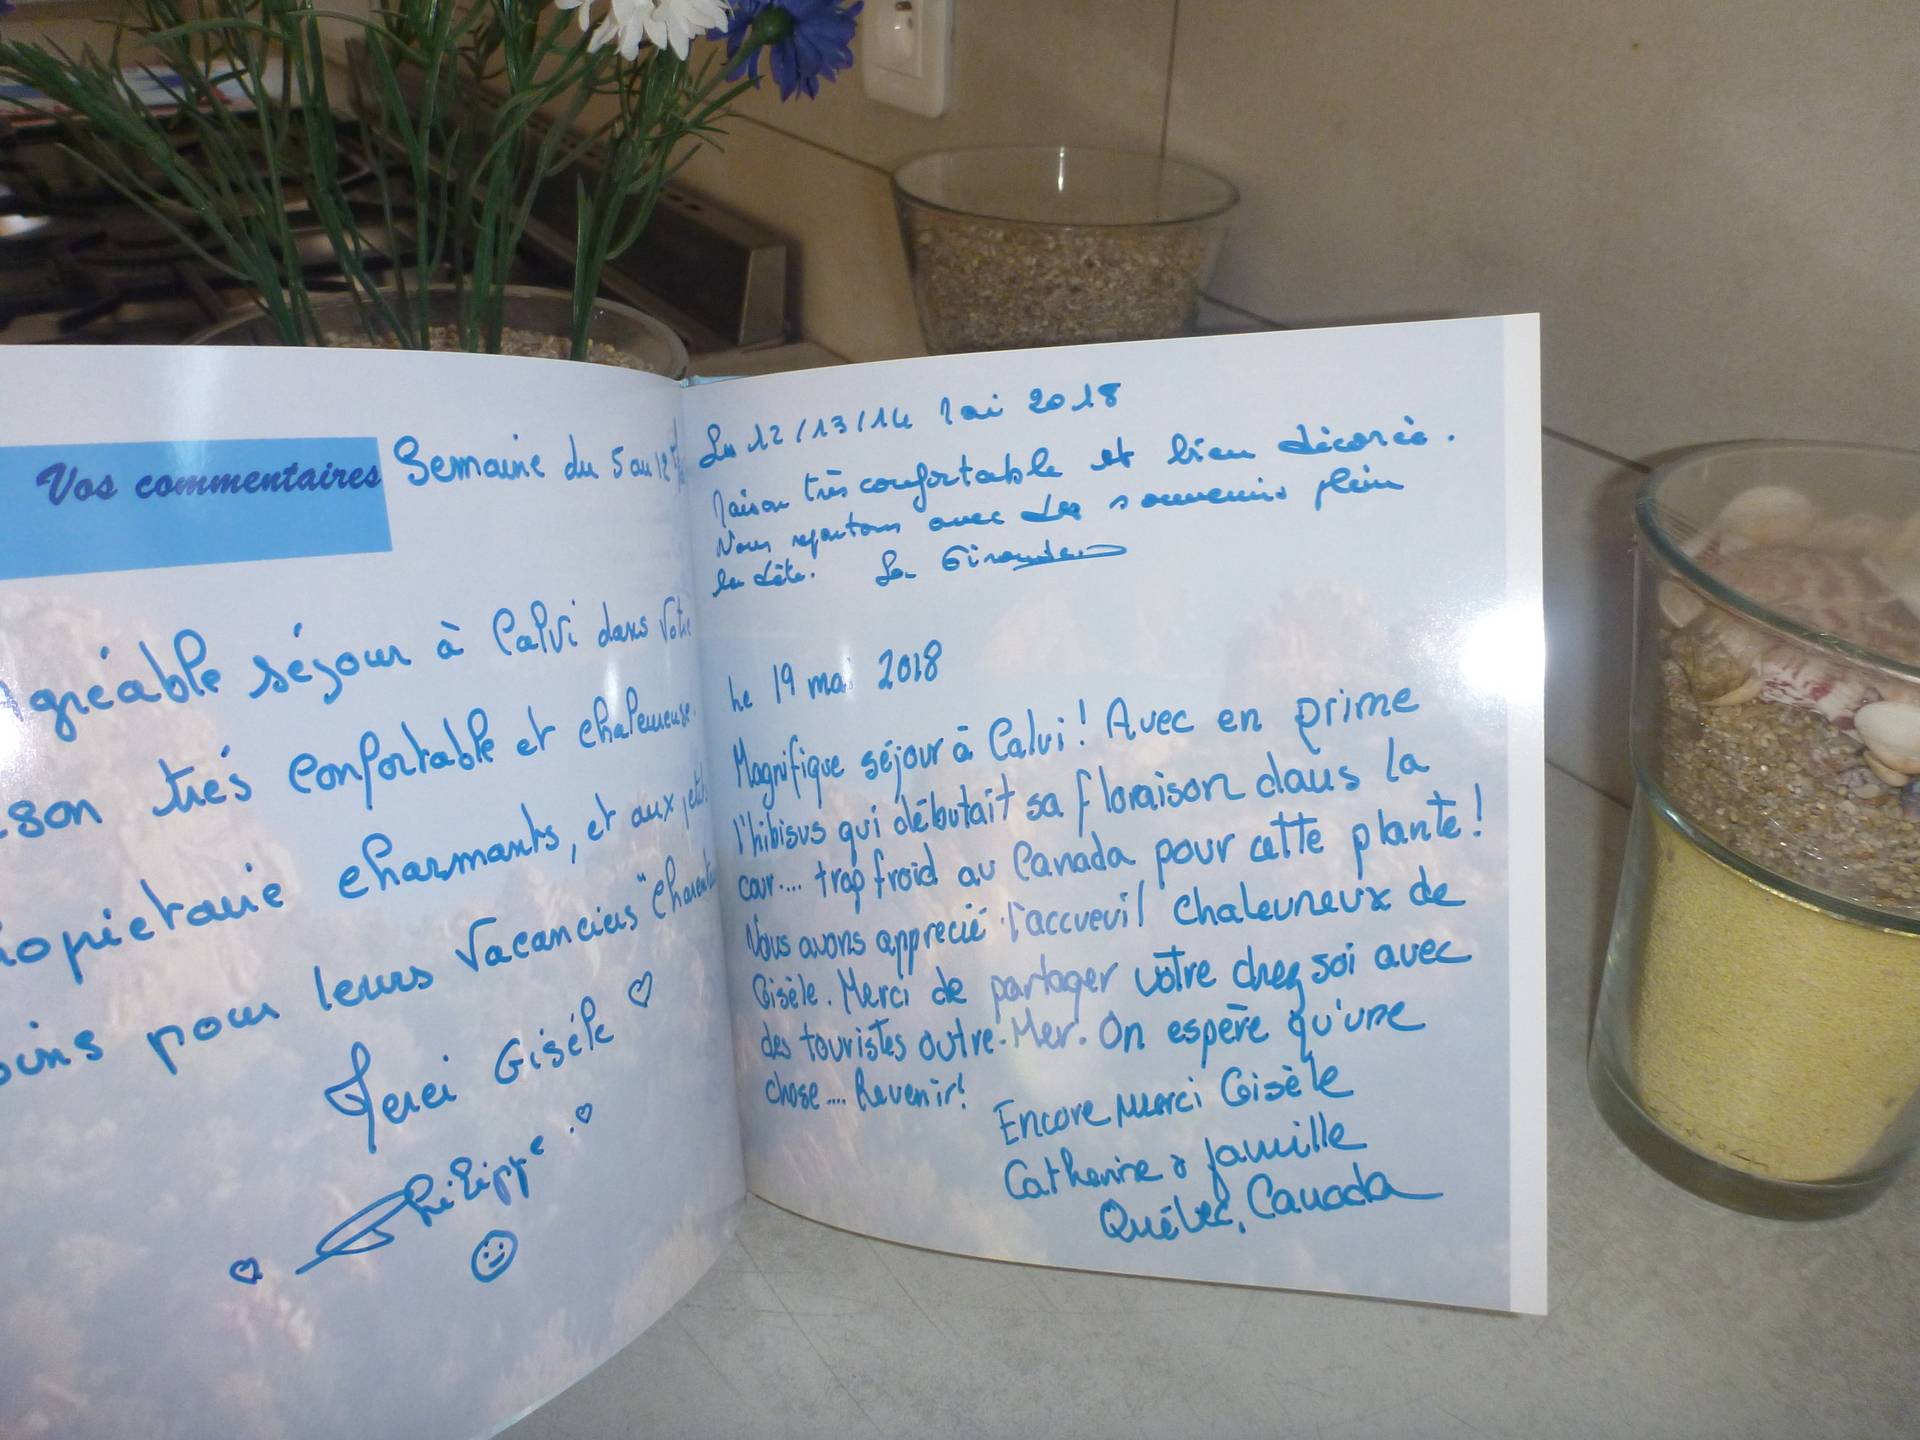 Vos commentaires
Semaine du 5 au 12
gréable séjour à Calvi dans votre
son trés confortable et chaleureuse.
propietaire charmants, et aux petits
oins pour leurs vacanciers "charentais
Merci Gisèle
Philippe
Les 12/13/14 Mai 2018
Maison très confortable et bien décorée.
Nous repartons avec des souvenirs plein
la tête. Les
Le 19 mai 2018
Magnifique séjour à Calvi! Avec en prime
l'hibisus qui débutait sa floraison dans la
cour.... trop froid au Canada pour cette plante!
Nous avons apprecié l'accueuil chaleureux de
Gisèle. Merci de partager votre chez soi avec
des touristes outre-Mer. On espère qu'une
chose.... Revenir!
Encore merci Gisèle
Catherine & famille
Québec, Canada